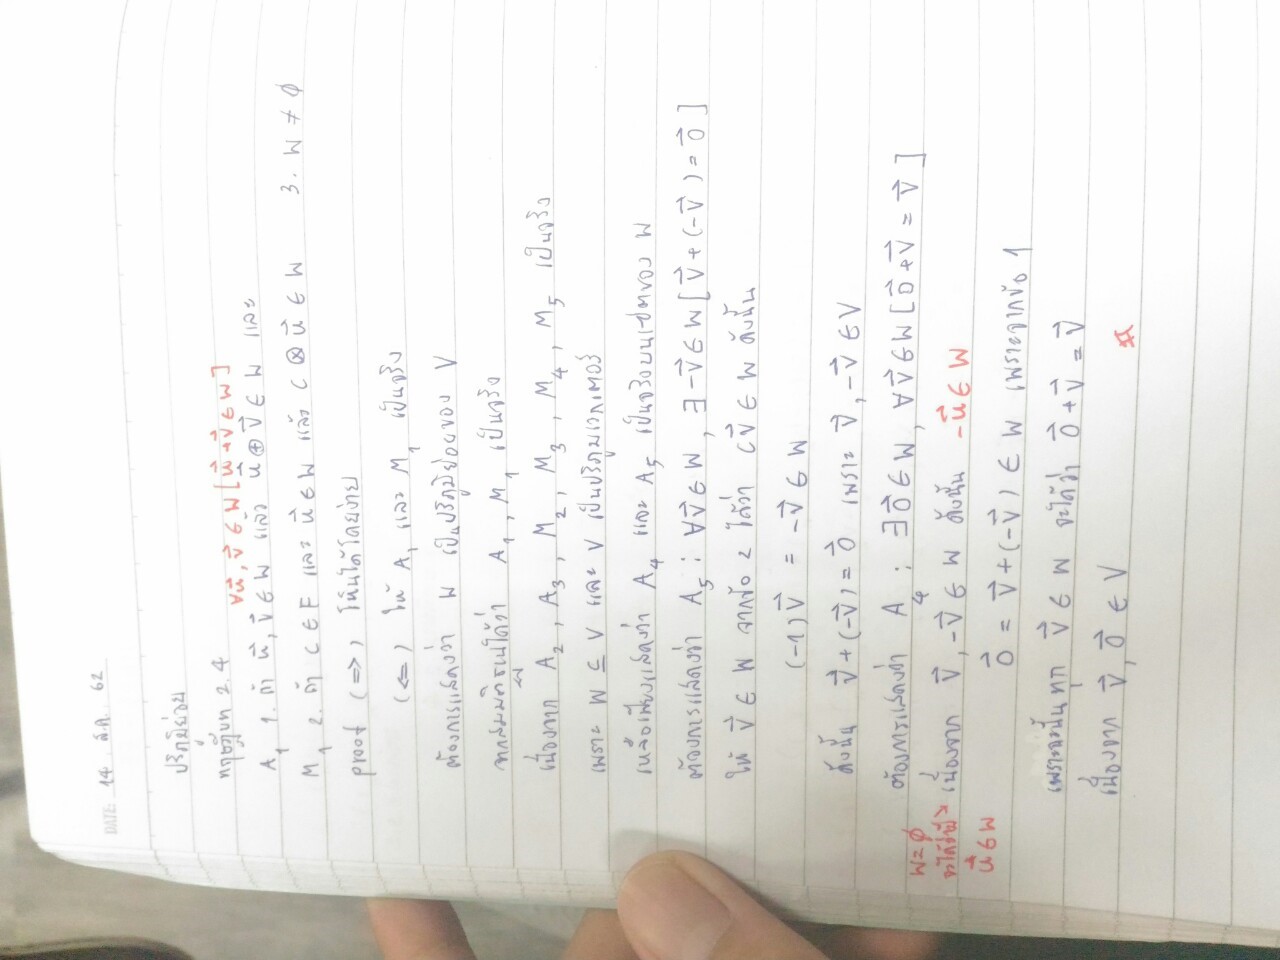 DATE 14 ส.ค. 62
ปริภูมิย่อย
ทฤษฎีบท 2.4
∀u⃗, v⃗ ∈ W [u⃗ + v⃗ ∈ W]
A₁ 1. ถ้า u⃗, v⃗ ∈ W แล้ว u⃗ ⊕ v⃗ ∈ W และ
M₁ 2. ถ้า C ∈ F และ u⃗ ∈ W แล้ว C ⊗ u⃗ ∈ W 3. W ≠ ∅
proof (⇒) เห็นได้โดยง่าย
(⇐) ให้ A₁ และ M₁ เป็นจริง
ต้องการแสดงว่า W เป็นปริภูมิย่อยของ V
จากสมมติฐานได้ว่า A₁, M₁ เป็นจริง
เนื่องจาก A₂, A₃, M₂, M₃, M₄, M₅ เป็นจริง
เพราะ W ⊆ V และ V เป็นปริภูมเวกเตอร์
เหลือเพียงแสดงว่า A₄ และ A₅ เป็นจริงบนเซตของ W
ต้องการแสดงว่า A₅ : ∀v⃗ ∈ W, ∃ -v⃗ ∈ W [v⃗ + (-v⃗) = 0⃗]
ให้ v⃗ ∈ W จากข้อ 2 ได้ว่า Cv⃗ ∈ W ดังนั้น
(-1)v⃗ = -v⃗ ∈ W
ดังนั้น v⃗ + (-v⃗) = 0⃗ เพราะ v⃗, -v⃗ ∈ V
ต้องการแสดงว่า A₄ : ∃0⃗ ∈ W, ∀v⃗ ∈ W [0⃗ + v⃗ = v⃗]
W = ∅
จะได้ว่ามี
u⃗ ∈ W
เนื่องจาก v⃗, -v⃗ ∈ W ดังนั้น -u⃗ ∈ W
0⃗ = v⃗ + (-v⃗) ∈ W เพราะจากข้อ 1
เพราะฉะนั้น ทุก v⃗ ∈ W จะได้ว่า 0⃗ + v⃗ = v⃗
เนื่องจาก v⃗, 0⃗ ∈ V